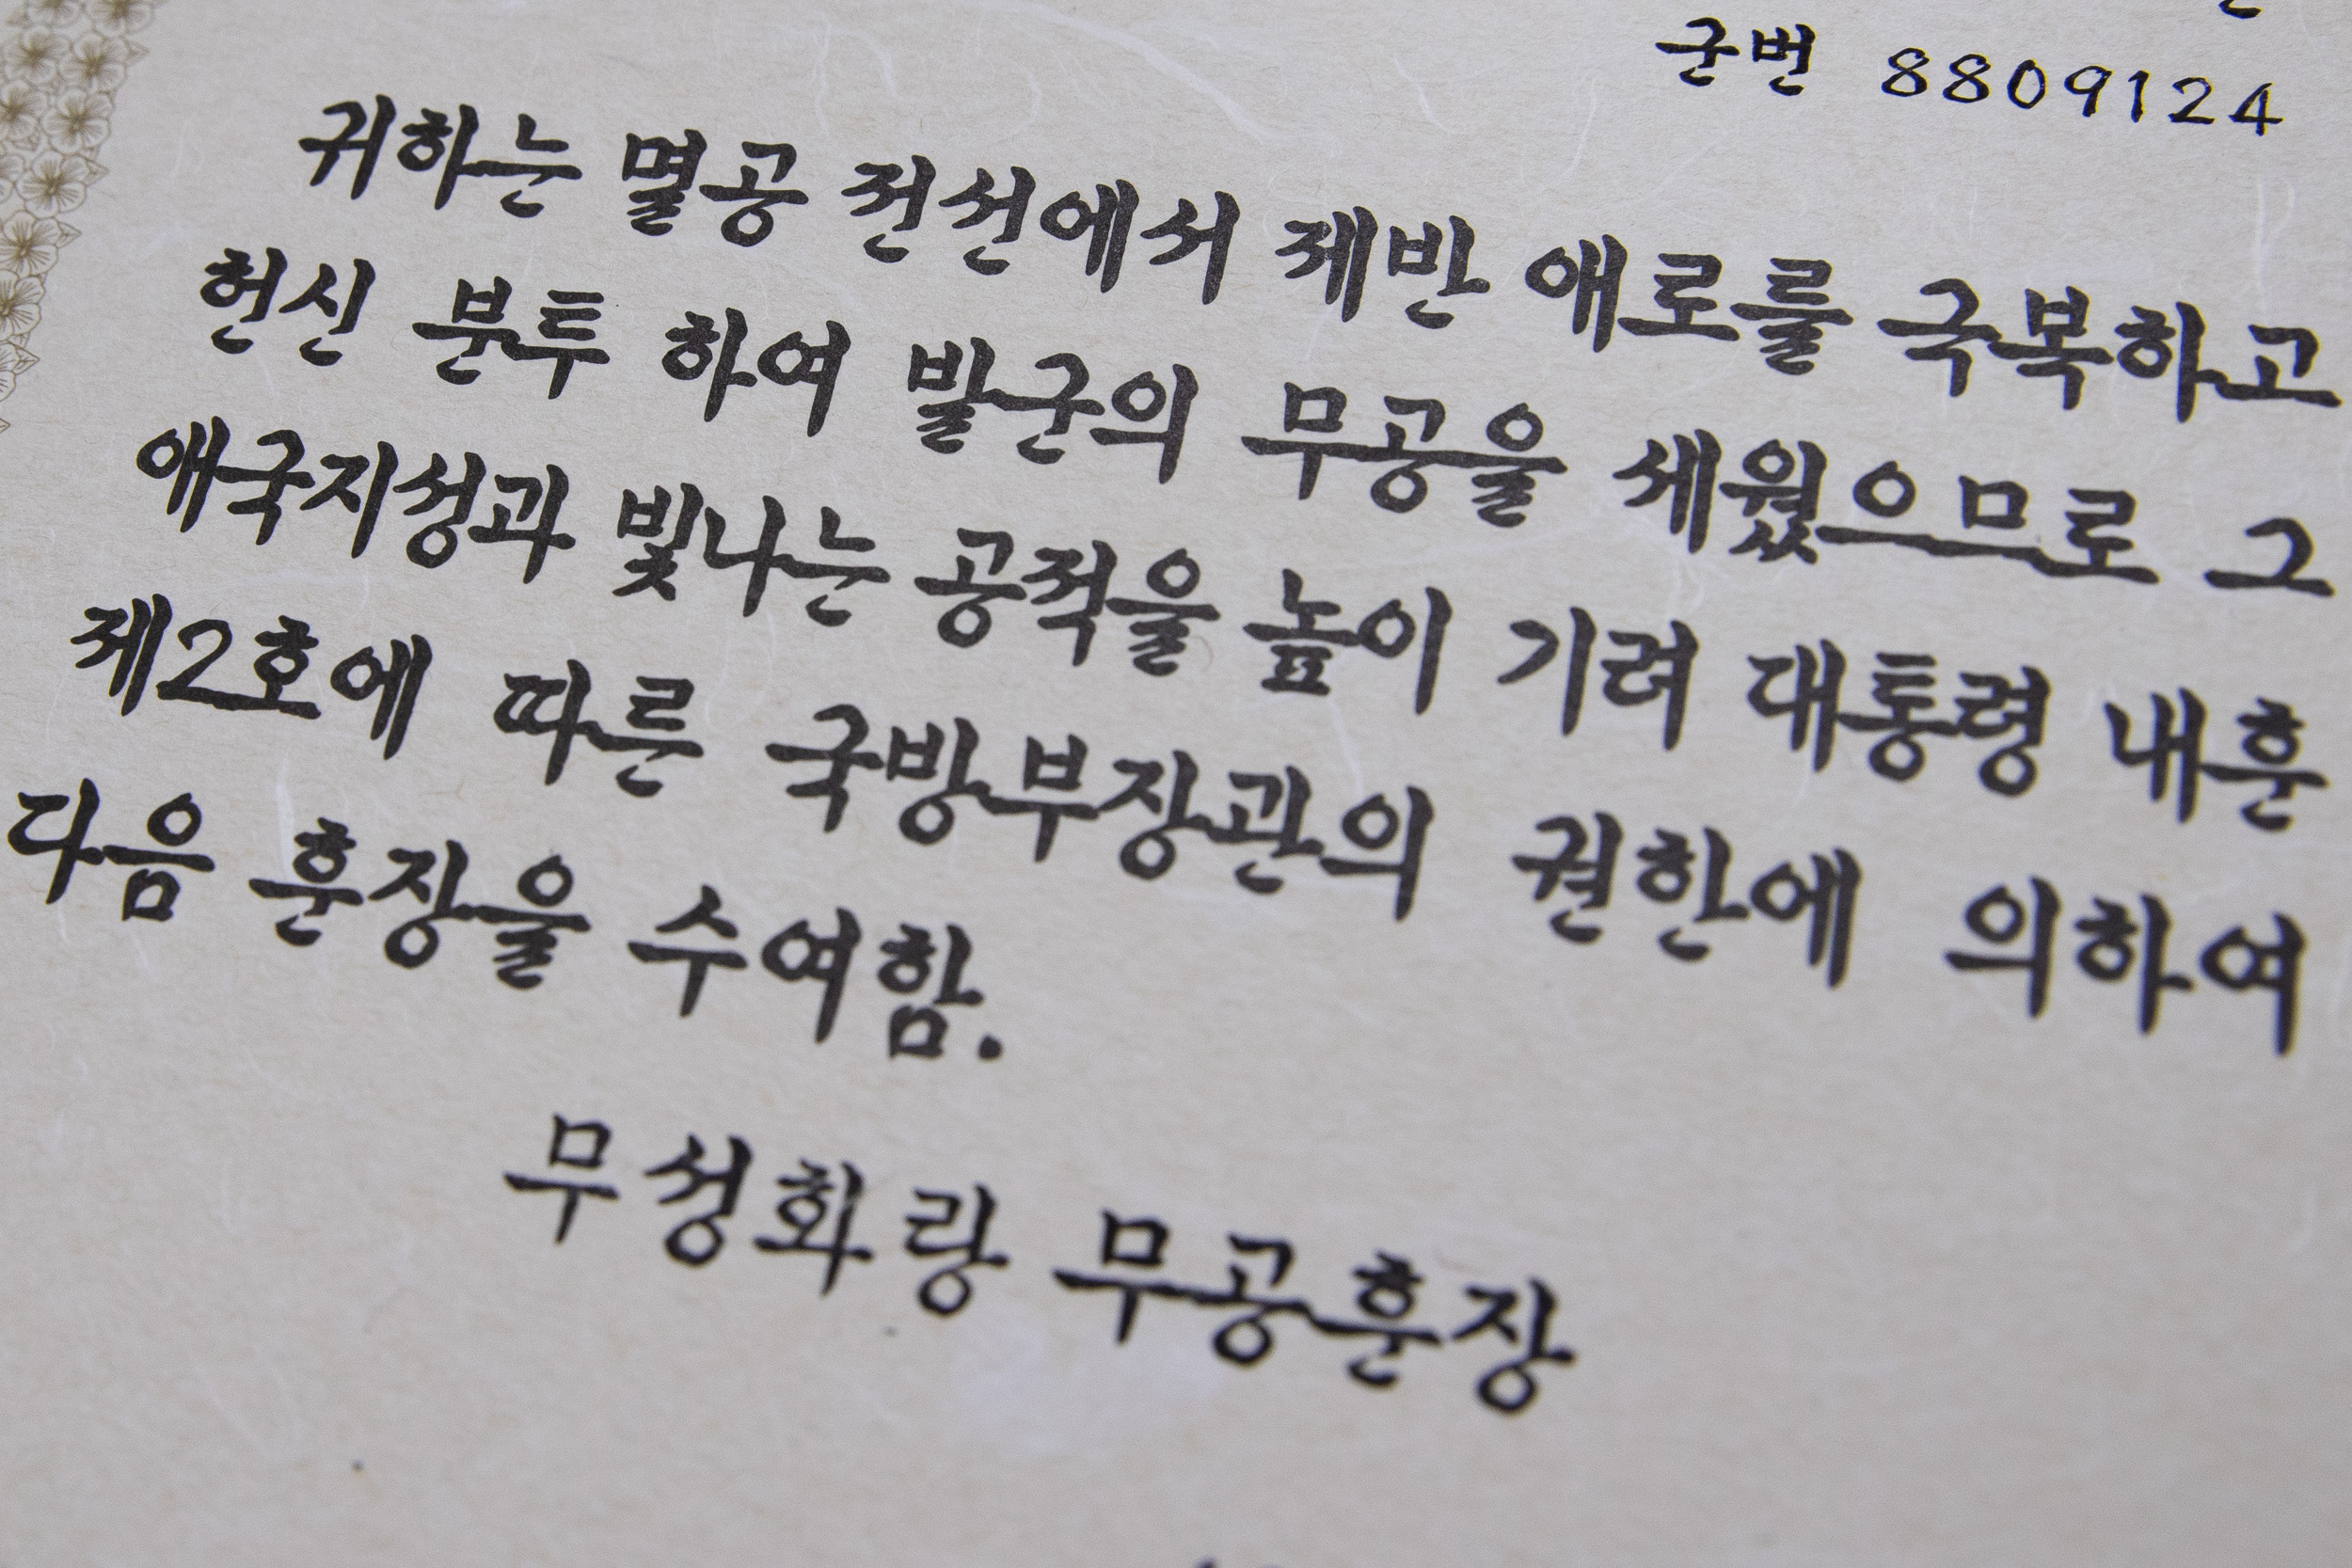 군번 8809124
귀하는 멸공 전선에서 제반 애로를 극복하고
헌신 분투 하여 발군의 무공을 세웠으므로 그
애국지성과 빛나는 공적을 높이 기려 대통령 내훈
제2호에 따른 국방부장관의 권한에 의하여
다음 훈장을 수여함.
무성화랑 무공훈장